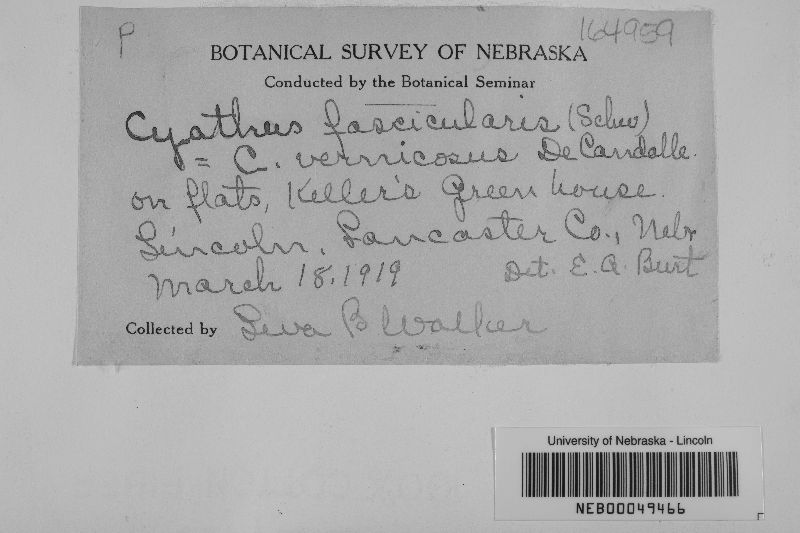 P 164959
BOTANICAL SURVEY OF NEBRASKA
Conducted by the Botanical Seminar
Cyathus fascicularis (Schw)
= C. vernicosus De Candolle.
on flats, Keller's Green house.
Lincoln, Lancaster Co., Nebr
March 18, 1919 Det. E. A. Burt
Collected by Leva B Walker
University of Nebraska - Lincoln
NEB00049466
F